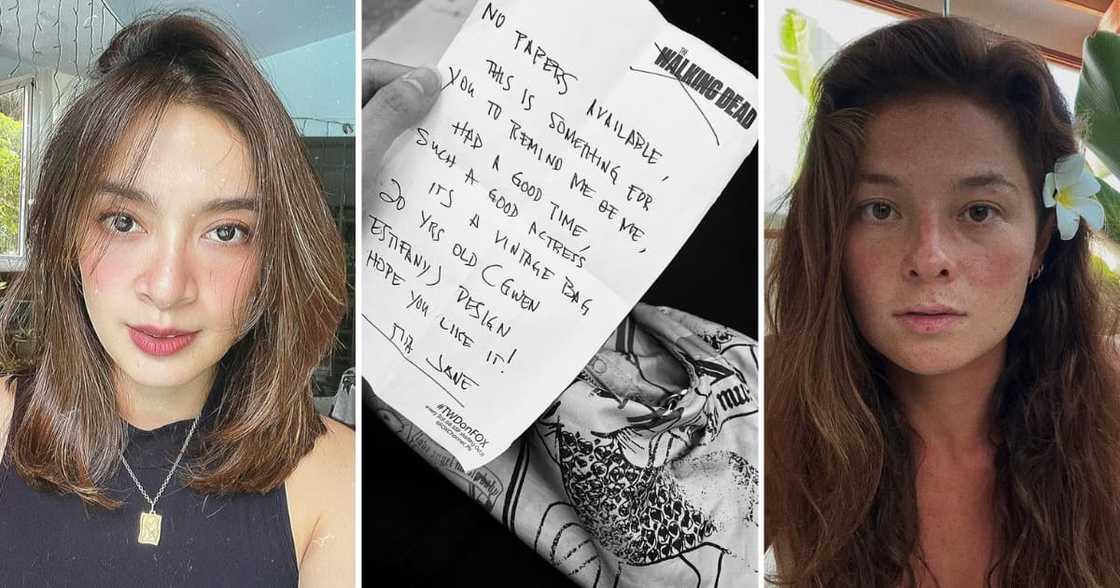 THE
WALKING DEAD
NO PAPERS AVAILABLE,
THIS IS SOMETHING FOR
YOU TO REMIND ME OF ME,
HAD A GOOD TIME,
SUCH A GOOD ACTRESS
ITS A VINTAGE BAG
20 YRS OLD (GWEN
ESTIFANY) DESIGN
HOPE YOU LIKE IT!
TITA JANE
#TWDonFOX